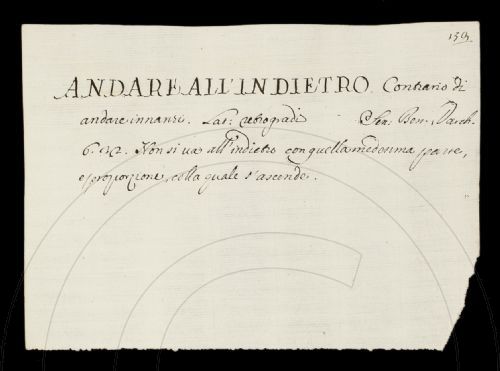 153
ANDARE ALL'INDIETRO. Contrario di
andare innanzi. Lat: retrogradi Sen. Ben. Varch.
6. 32. Non si va all'indietro con quella medesima parte,
e proporzione, colla quale s'ascende.